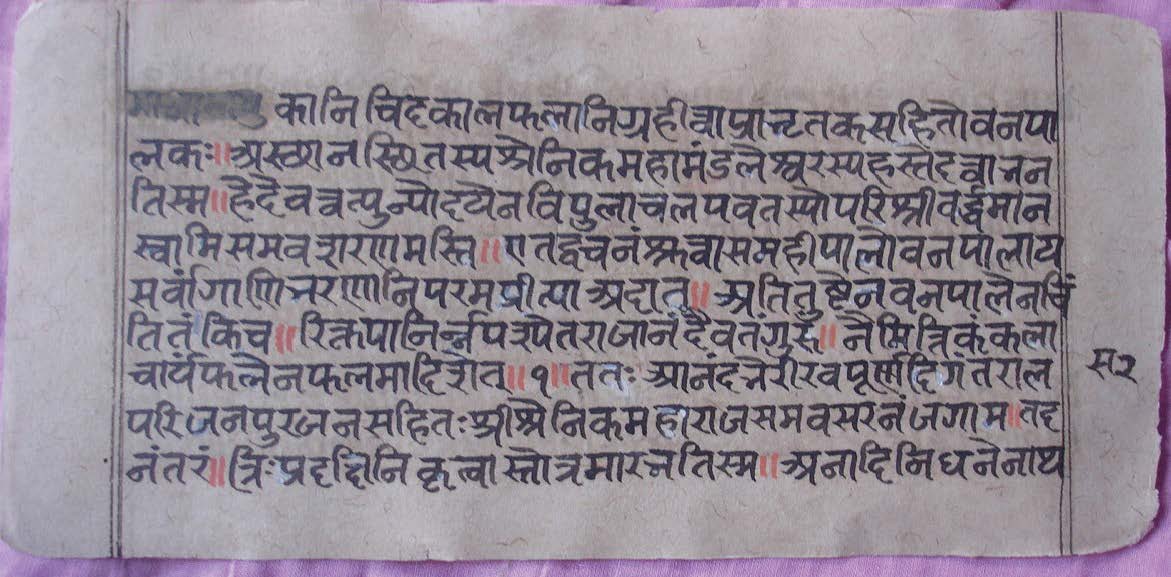 कानि चिदकालफलानि ग्रहीत्वा प्रान्टतकसहितो वनपा
लकः॥ अस्छानस्छितस्य श्रेनिकमहामंडलेश्वरस्य हस्ते दत्वा नन
तिस्म॥ हे देव त्वत्पुन्योदयेन विपुलाचलपवतस्योपरि श्रीवर्द्धमान
स्वामिसमवशरणमस्ति॥ एतद्वचनं श्रुत्वा स महीपालो वनपालाय
सर्वांगाणि नरणानि परमप्रीत्या अदात्॥ अतितुष्टेन वनपालेन चिं
तितं किंच॥ रिक्तपानिर्न्नपश्येत राजानं दैवतं गुरु॥ नैमित्रिकं कला
चार्यं फलेन फलमादिशेत्॥१॥ ततः आनंदनेरीरवपूर्णदिगंतराल
परिजनपुरजनसहितः श्रीश्रेनिकमहाराज समवसरनं जगाम॥ तद
नंतरं॥ त्रिःप्रदक्षिनि कृत्वा स्तोत्रमारनतिस्म॥ अनादिनिधनेनाथ
स२